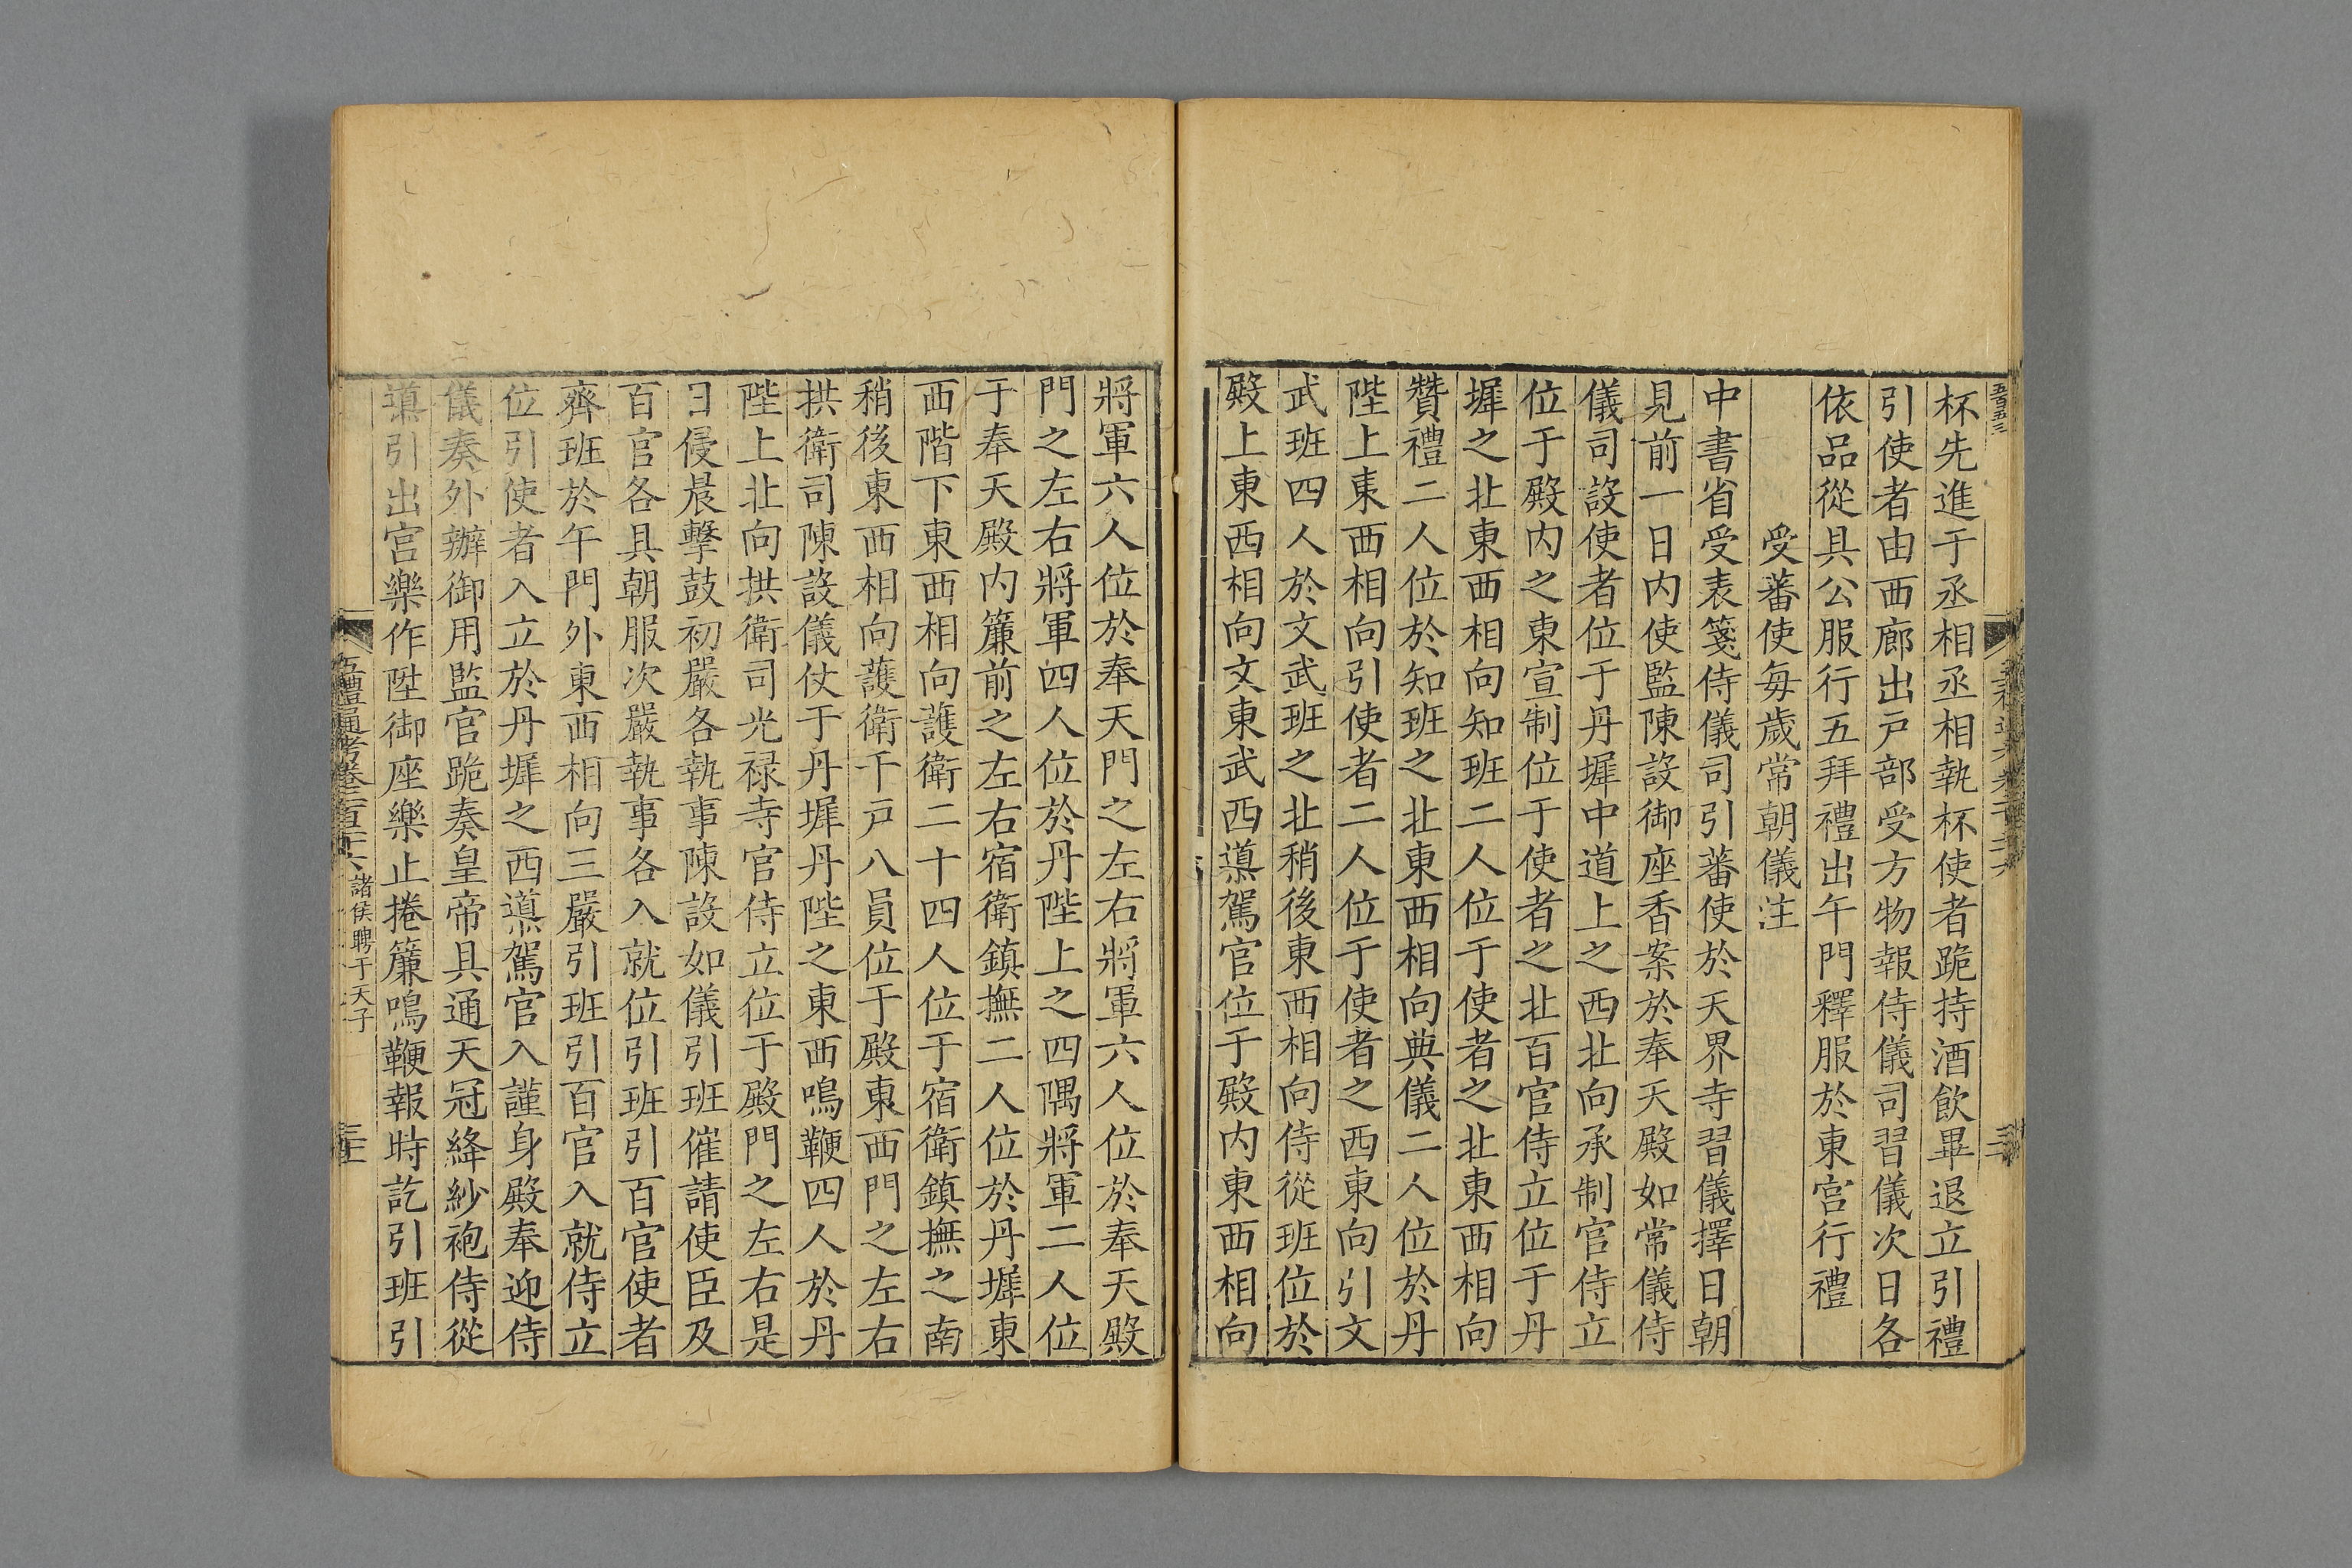 五百五三
杯先進于丞相丞相執杯使者跪持酒飲畢退立引禮
引使者由西廊出戸部受方物報侍儀司習儀次日各
依品從具公服行五拜禮出午門釋服於東宮行禮
受蕃使每歲常朝儀注
中書省受表箋侍儀司引蕃使於天界寺習儀擇日朝
見前一日内使監陳設御座香案於奉天殿如常儀侍
儀司設使者位于丹墀中道上之西北向承制官侍立
位于殿内之東宣制位于使者之北百官侍立位于丹
墀之北東西相向知班二人位于使者之北東西相向
贊禮二人位於知班之北東西相向典儀二人位於丹
陛上東西相向引使者二人位于使者之西東向引文
武班四人於文武班之北稍後東西相向侍從班位於
殿上東西相向文東武西導駕官位于殿内東西相向
將軍六人位於奉天門之左右將軍六人位於奉天殿
門之左右將軍四人位於丹陛上之四隅將軍二人位
于奉天殿内簾前之左右宿衛鎮撫二人位於丹墀東
西階下東西相向護衛二十四人位于宿衛鎮撫之南
稍後東西相向護衛千戸八員位于殿東西門之左右
拱衛司陳設儀仗于丹墀丹陛之東西鳴鞭四人於丹
陛上北向拱衛司光禄寺官侍立位于殿門之左右是
日侵晨擊鼓初嚴各執事陳設如儀引班催請使臣及
百官各具朝服次嚴執事各入就位引班引百官使者
齊班於午門外東西相向三嚴引班引百官入就侍立
位引使者入立於丹墀之西導駕官入謹身殿奉迎侍
儀奏外辦御用監官跪奏皇帝具通天冠絳紗袍侍從
導引出宮樂作陞御座樂止捲簾鳴鞭報時訖引班引
五禮通考卷二百二十六 諸侯聘于天子